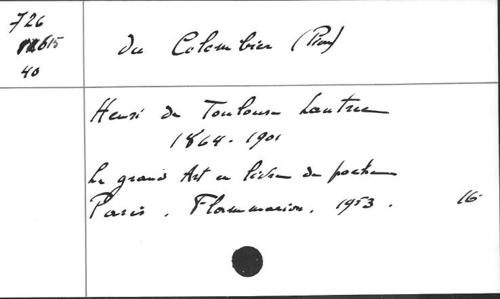 726
615
40
du Colombier (Pierre)
Henri de Toulouse Lautrec
1864-1901
Le grand Art en livre de poche
Paris. Flammarion. 1953. 16